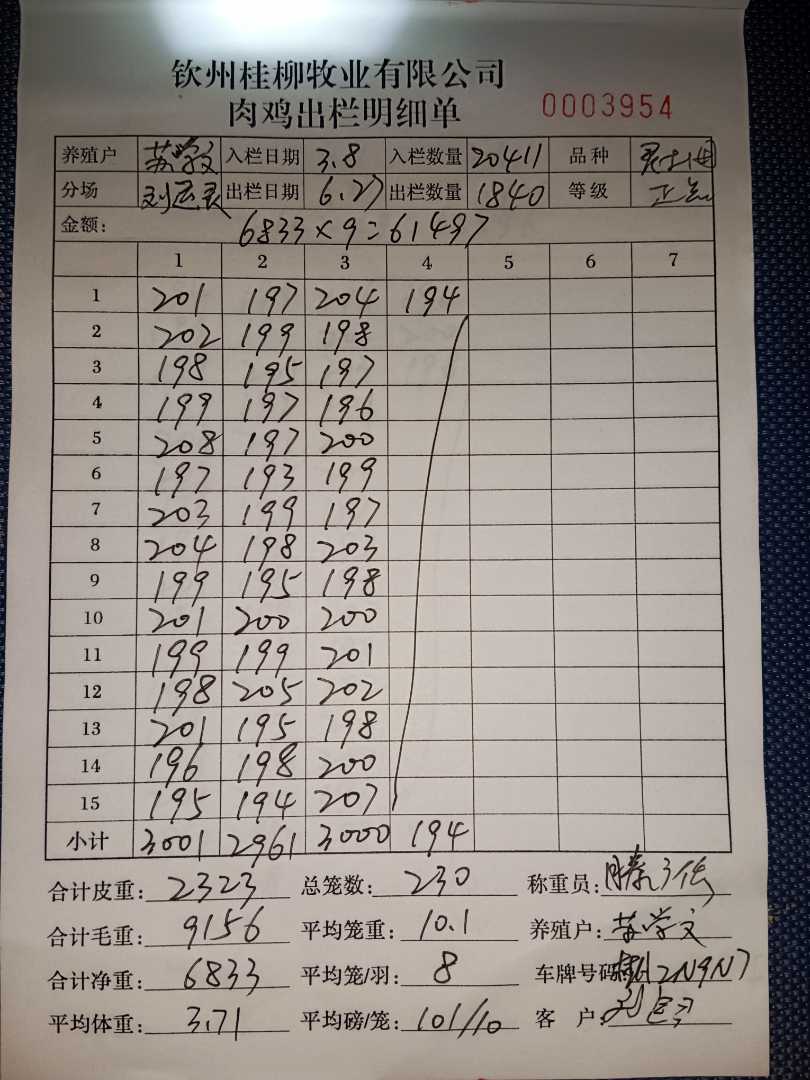 钦州桂柳牧业有限公司
肉鸡出栏明细单 0003954
养殖户 苏学文 入栏日期 3.8 入栏数量 20411 品种
分场 出栏日期 6.27 出栏数量 1840 等级
金额: 6833×9=61497
1 2 3 4 5 6 7
1 201 197 204 194
2 202 199 198
3 198 195 197
4 199 197 196
5 208 197 200
6 197 193 199
7 203 199 197
8 204 198 203
9 199 195 198
10 201 200 200
11 199 199 201
12 198 205 202
13 201 195 198
14 196 198 200
15 195 194 207
小计 3001 2961 3000 194
合计皮重: 2323 总笼数: 230 称重员:
合计毛重: 9156 平均笼重: 10.1 养殖户: 苏学文
合计净重: 6833 平均笼/羽: 8 车牌号码 2N9N7
平均体重: 3.71 平均磅/笼: 101/10 客 户: